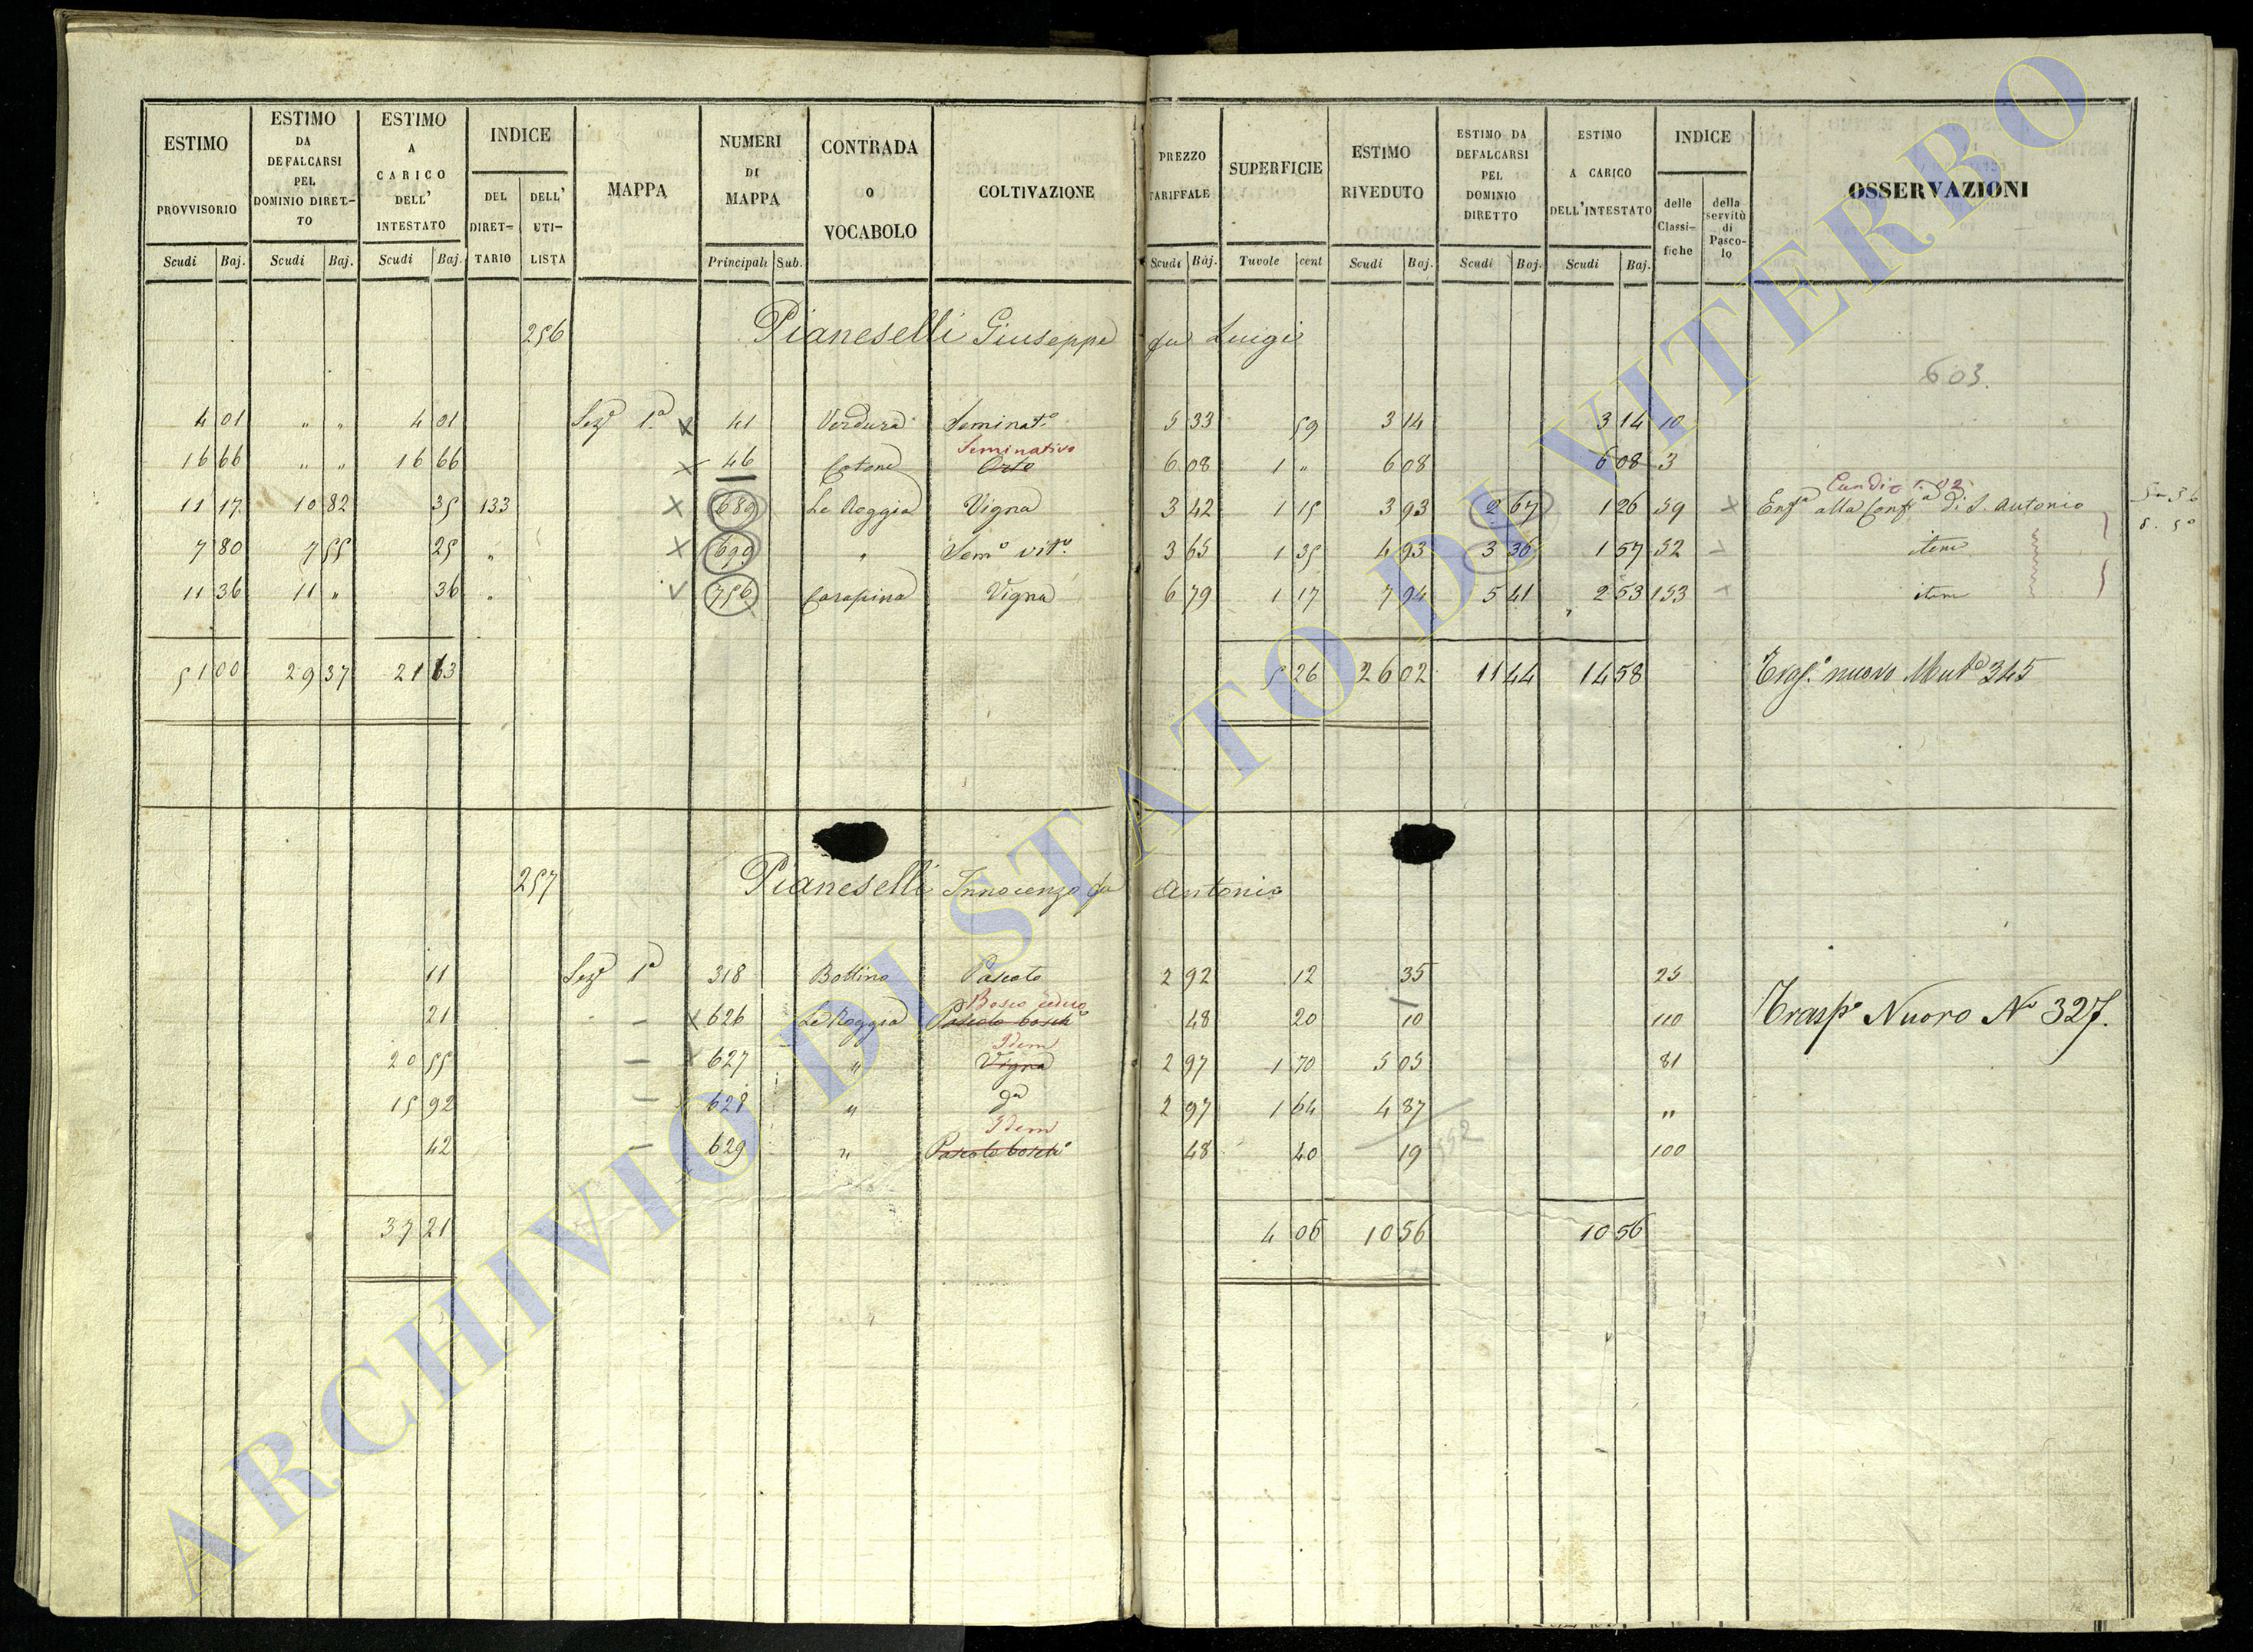 ESTIMO PROVVISORIO Scudi Baj.
ESTIMO DA DEFALCARSI PEL DOMINIO DIRET-TO Scudi Baj.
ESTIMO A CARICO DELL' INTESTATO Scudi Baj.
INDICE DEL DIRET-TARIO DELL' UTI-LISTA
MAPPA
NUMERI DI MAPPA Principali Sub.
CONTRADA o VOCABOLO
COLTIVAZIONE
PREZZO TARIFFALE Scudi Baj.
SUPERFICIE Tavole cent
ESTIMO RIVEDUTO Scudi Baj.
ESTIMO DA DEFALCARSI PEL DOMINIO DIRETTO Scudi Baj.
ESTIMO A CARICO DELL'INTESTATO Scudi Baj.
INDICE delle Classi-fiche della servitù di Pasco-lo
OSSERVAZIONI
256 Pianeselli Giuseppe fu Luigi
603.
4 01 " " 4 01 Sezᵉ 1.ª x 41 Verdura Seminatº 5 33 59 3 14 3 14 10
Seminativo
16 66 " " 16 66 x 46 Cotone Orto 6 08 1 " 6 08 6 08 3
11 17 10 82 35 133 x 689 Le Roggia Vigna 3 42 1 15 3 93 2 67 1 26 59 x Enfª alla Confª di S. Antonio
7 80 7 55 25 " x 699 " Semº vitº. 3 65 1 35 4 93 3 36 1 57 52 item
11 36 11 " 36 " 756 Carapina Vigna 6 79 1 17 7 94 5 41 2 53 153 item
51 00 29 37 21 63 5 26 26 02 11 44 14 58 nuovo 345
257 Pianeselli Innocenzo fu Antonio
11 Sezᵉ 1ª 318 Bottino Pascolo 2 92 12 35 25
Bosco ceduo
21 x 626 Le Roggia Pascolo boschº 48 20 10 110 Traspº Nuovo Nº 327.
Idem
20 55 627 " Vigna 2 97 1 70 5 05 81
15 92 628 " dª 2 97 1 64 4 87 "
Idem
42 629 " Pascolo boschº 48 40 19 100
37 21 4 06 10 56 10 56
ARCHIVIO DI STATO DI VITERBO